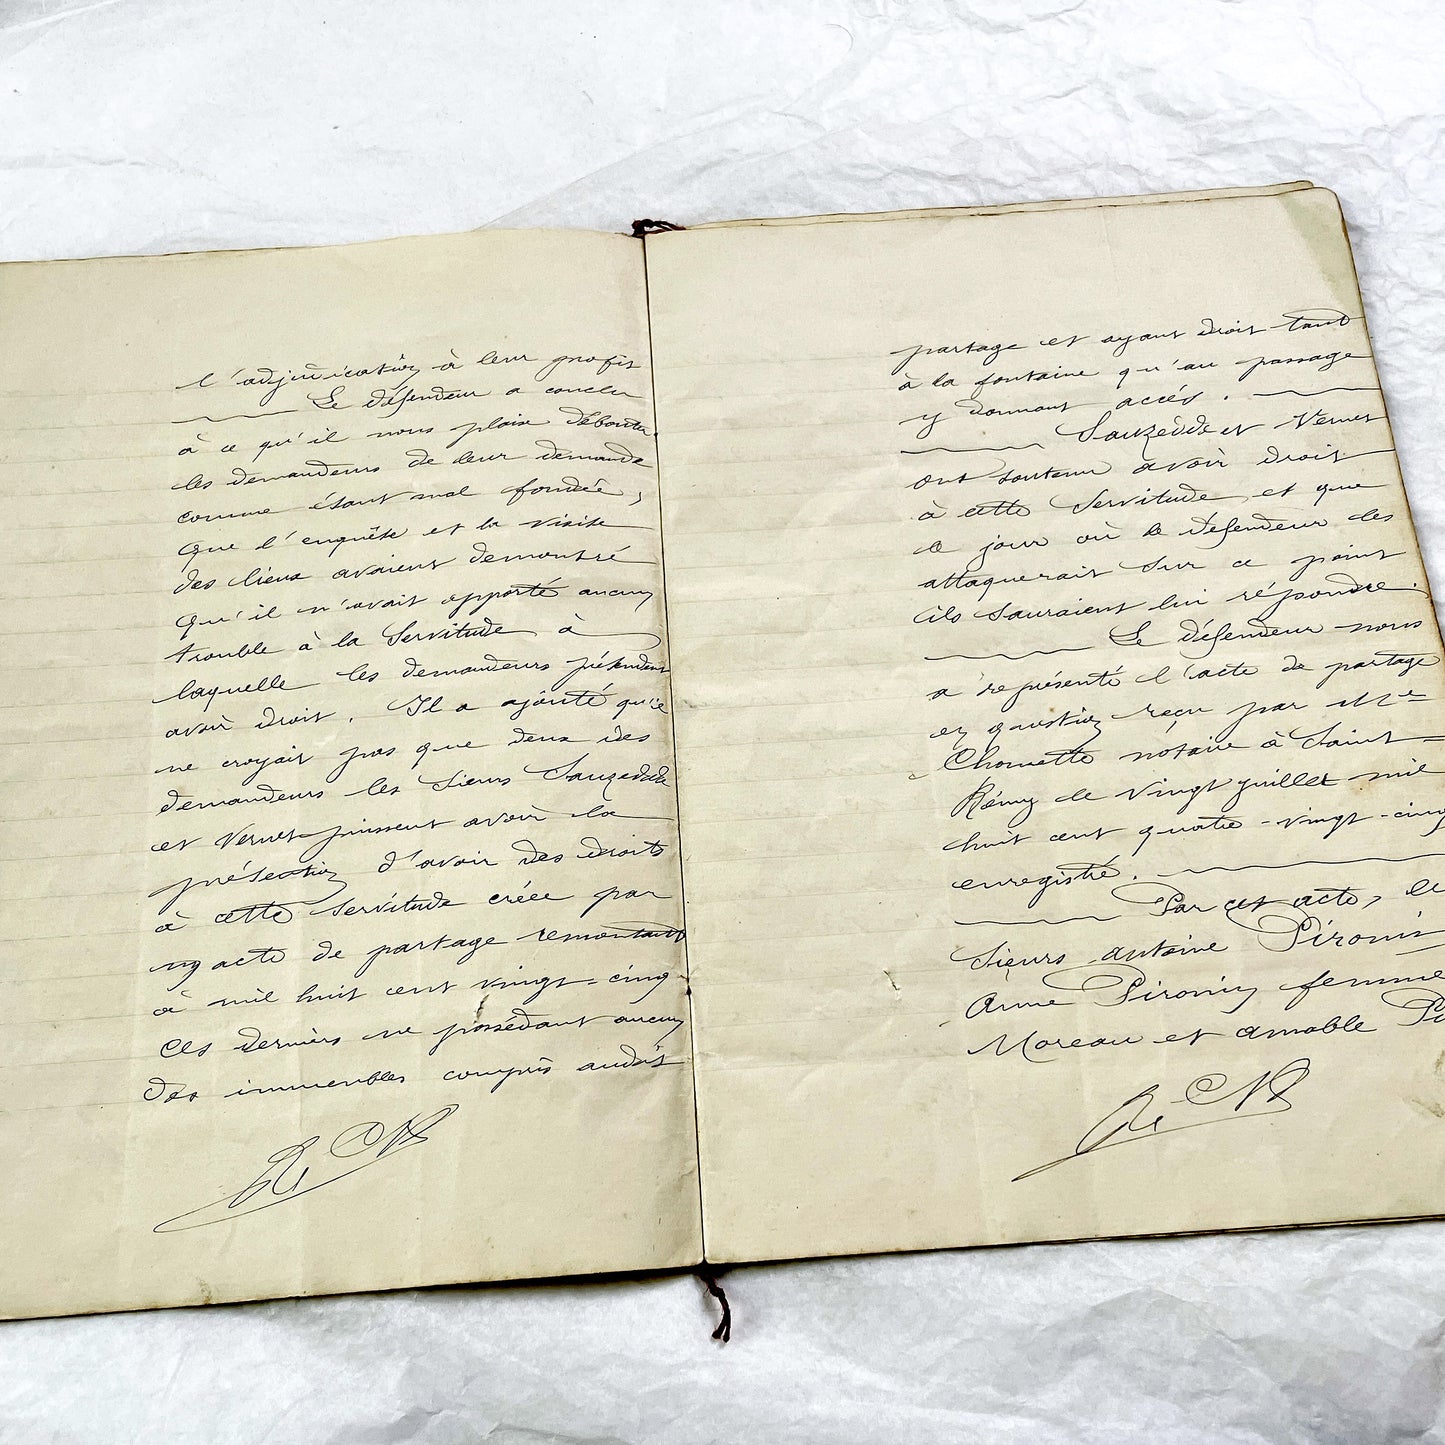 l'adjudication à leur profit
Le défendeur a conclu
à ce qu'il nous plaise débouter
les demandeurs de leur demande
comme étant mal fondée,
que l'enquête et la visite
des lieux avaient démontré
qu'il n'avait apporté aucun
trouble à la servitude à
laquelle les demandeurs prétendent
avoir droit. Il a ajouté qu'il
ne croyait pas que deux des
demandeurs les sieurs Sauzedde
et Vernet puissent avoir la
prétention d'avoir des droits
à cette servitude créée par
un acte de partage remontant
à mil huit cent vingt-cinq
ces derniers ne possédant aucun
des immeubles compris audit
partage et ayant droit tant
à la fontaine qu'au passage
y donnant accés.
Sauzedde et Vernet
ont soutenu avoir droit
à cette servitude et que
le jour où le défendeur les
attaquerait sur ce point
ils sauraient lui répondre.
Le défendeur nous
a représenté l'acte de partage
en question reçu par Me
Chomette notaire à Saint-
Rémy le vingt juillet mil
huit cent quatre-vingt-cinq
enregistré.
Par cet acte, le
sieurs antoine Pironin
Anne Pironin femme
Moreau et amable Pi